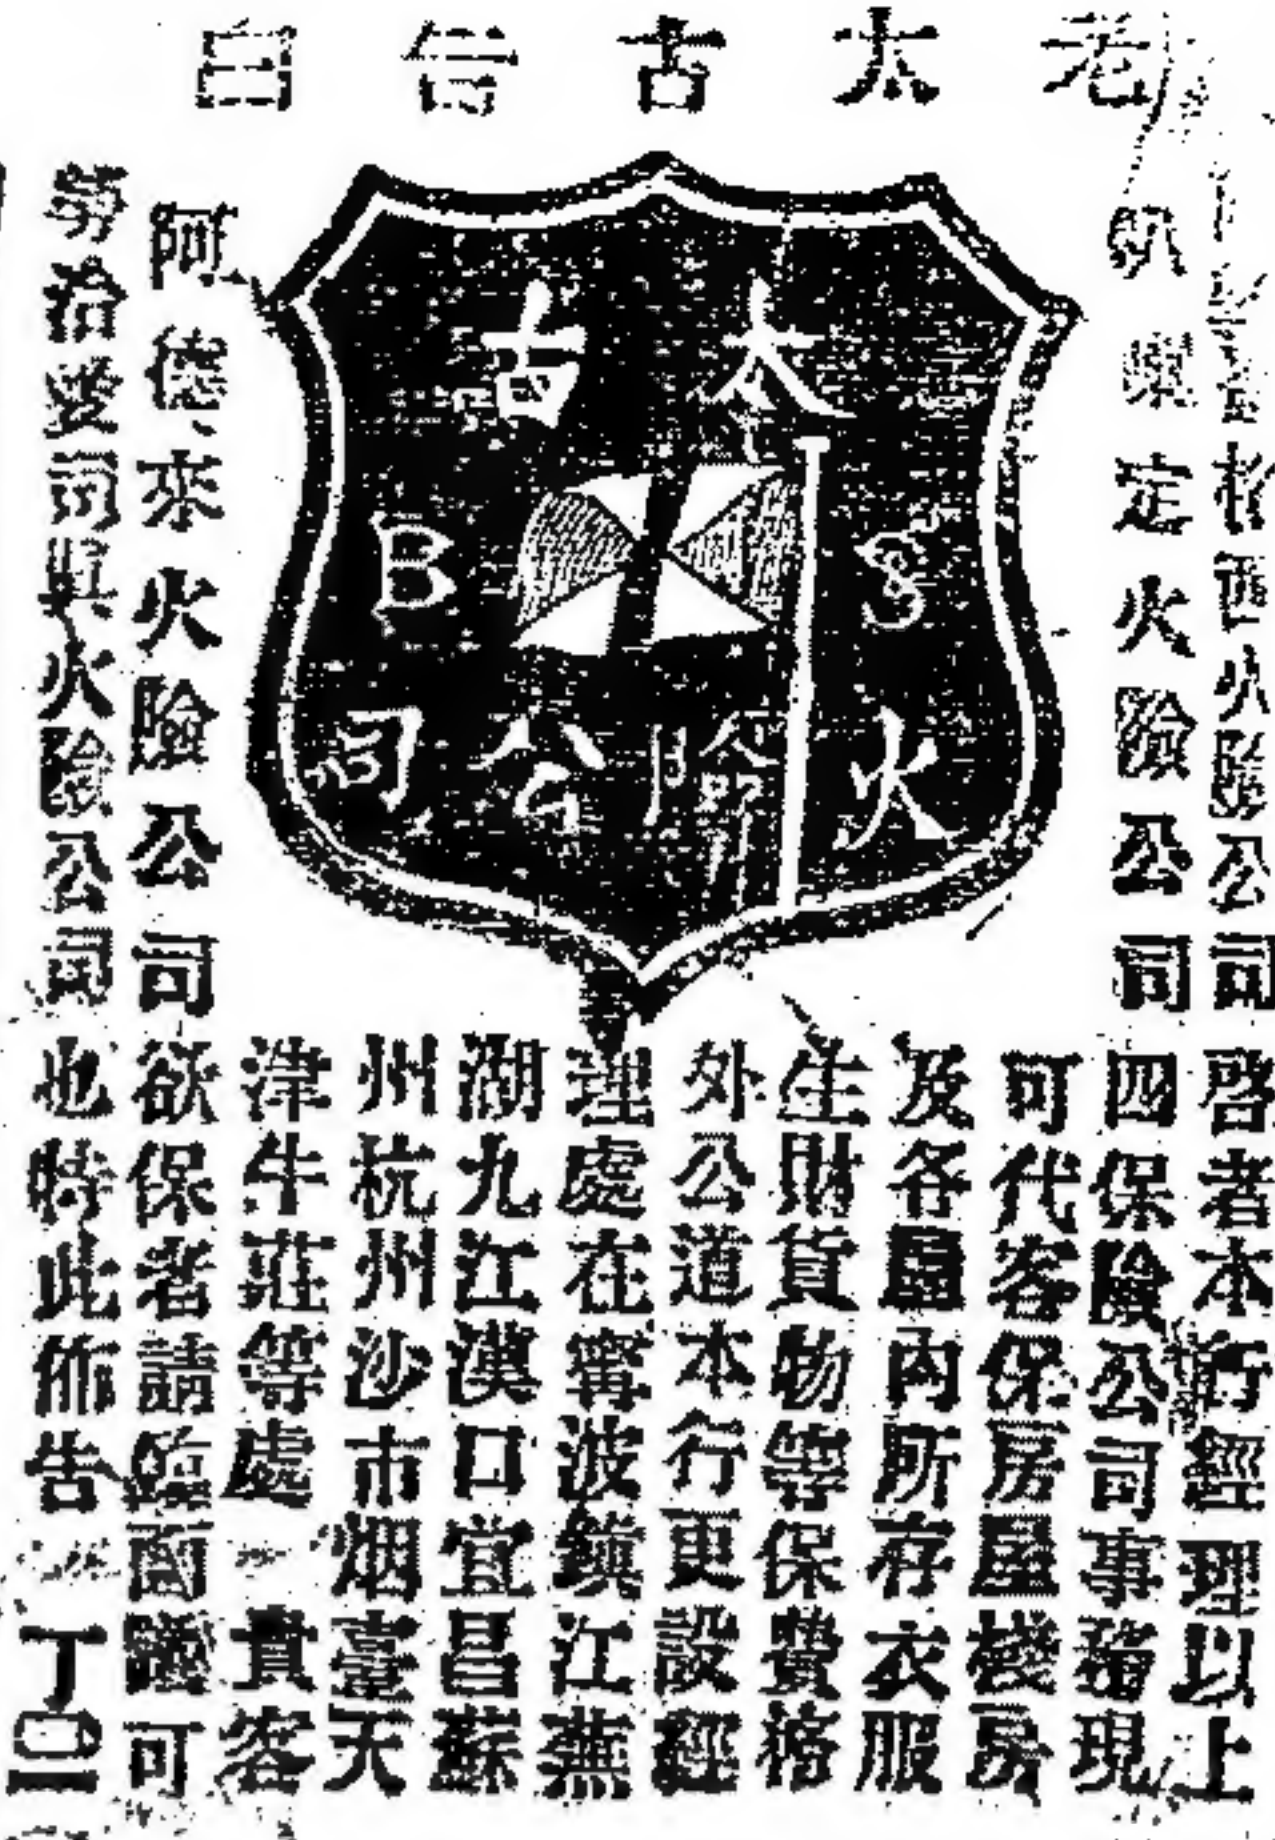 老太古告白
太古
S B
火險公司
火險公司
定火險公司
阿德來火險公司
勞治愛司與火險公司
啓者本行經理以上
四保險公司事務現
可代客保房屋棧房
及各屋內所存衣服
生財貨物等保費格
外公道本行更設經
理處在甯波鎮江蕪
湖九江漢口宜昌蘇
州杭州沙市烟臺天
津牛莊等處 貴客
欲保者請臨面議可
也特此佈告 丁